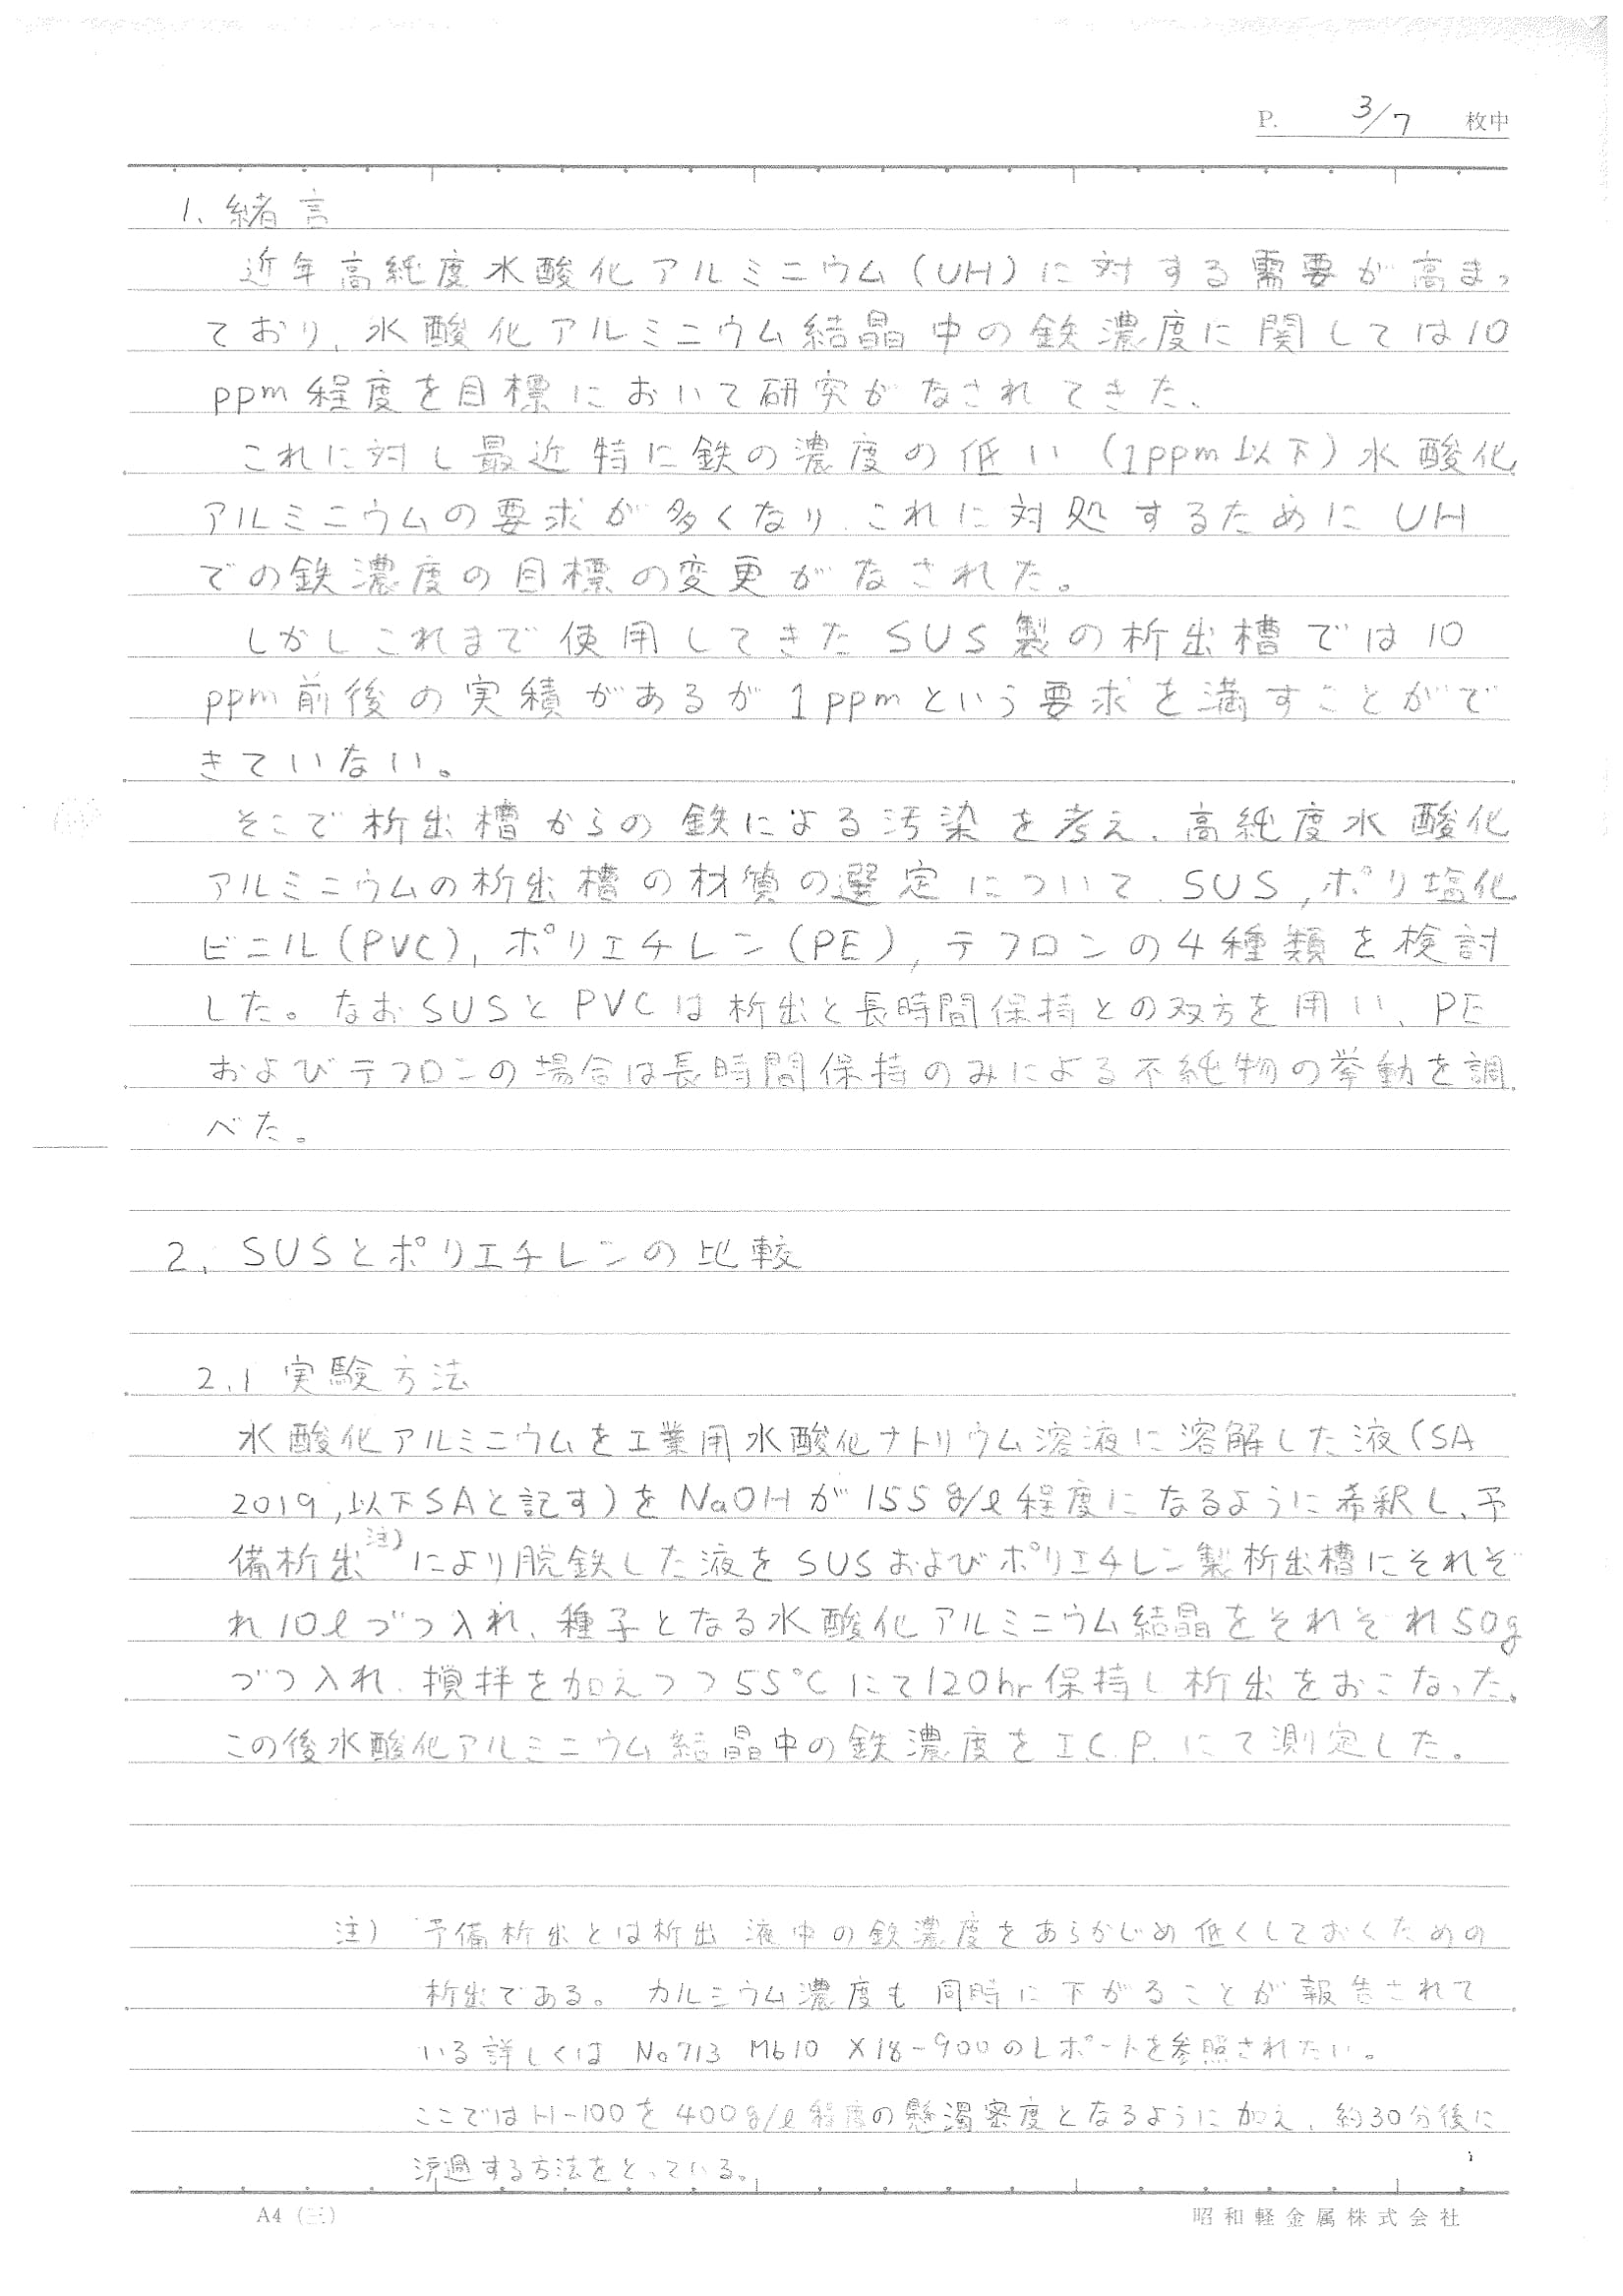 P. 3/7 枚中
1. 緒言
近年高純度水酸化アルミニウム(UH)に対する需要が高まっ
ており、水酸化アルミニウム結晶中の鉄濃度に関しては10
ppm程度を目標において研究がなされてきた、
これに対し最近特に鉄の濃度の低い(1ppm以下)水酸化
アルミニウムの要求が多くなり、これに対処するためにUH
での鉄濃度の目標の変更がなされた。
しかしこれまで使用してきたSUS製の析出槽では10
ppm前後の実績があるが1ppmという要求を満すことがで
きていない。
そこで析出槽からの鉄による汚染を考え、高純度水酸化
アルミニウムの析出槽の材質の選定について、SUS,ポリ塩化
ビニル(PVC),ポリエチレン(PE),テフロンの4種類を検討
した。なおSUSとPVCは析出と長時間保持との双方を用い、PE
およびテフロンの場合は長時間保持のみによる不純物の挙動を調
べた。
2. SUSとポリエチレンの比較
2.1 実験方法
水酸化アルミニウムを工業用水酸化ナトリウム溶液に溶解した液(SA
2019,以下SAと記す)をNaOHが155g/l程度になるように希釈し、予
備析出注)により脱鉄した液をSUSおよびポリエチレン製析出槽にそれぞ
れ10lづつ入れ、種子となる水酸化アルミニウム結晶をそれぞれ50g
づつ入れ、撹拌を加えつつ55℃にて120hr保持し析出をおこなった。
この後水酸化アルミニウム結晶中の鉄濃度をI.C.P.にて測定した。
注) 予備析出とは析出液中の鉄濃度をあらかじめ低くしておくための
析出である。カルミウム濃度も同時に下がることが報告されて
いる詳しくは No713 M610 X18-900のレポートを参照されたい。
ここではH-100を400g/l程度の懸濁密度となるように加え、約30分後に
沪過する方法をとっている。
A4(三) 昭和軽金属株式会社